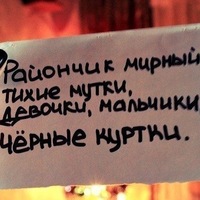 Райончик мирный
тихие мутки,
девочки, мальчики
чёрные куртки.